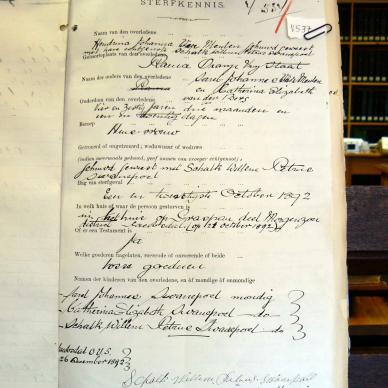 STERFKENNIS.
V 537
Naam van den overledene
Hendrina Johanna Van
gehuwd geweest
met
Schalk Willem Petrus Swanepoel
Geboorteplaats van den overledene
Oranje Vry Staat
Namen der ouders van den overledene
Carel Johannes
en Catharina Elizabeth
Ouderdom van den overledene
Vier en Zestig jaren drie maanden en
een en twintig dagen
Beroep
Huisvrouw
Getrouwd of ongetrouwd; weduwnaar of weduwe
gehuwd geweest met Schalk Willem Petrus
Swanepoel
Dag van sterfgeval
Een en twintigste October 1892
In welk huis of waar de persoon gestorven is
huis op Graspan deel Morgenzon
October 1892
Of er een Testament is
Ja
Welke goederen nagelaten, meerde of onroerende of beide
losse goederen
Namen der kinderen van den overledene, en of mondige of onmondige
Carel Johannes Swanepoel mondig
Catharina Elizabeth Swanepoel do
Schalk Willem Petrus Swanepoel do
O.V.S.
26 December 1892
Schalk Willem Petrus Swanepoel